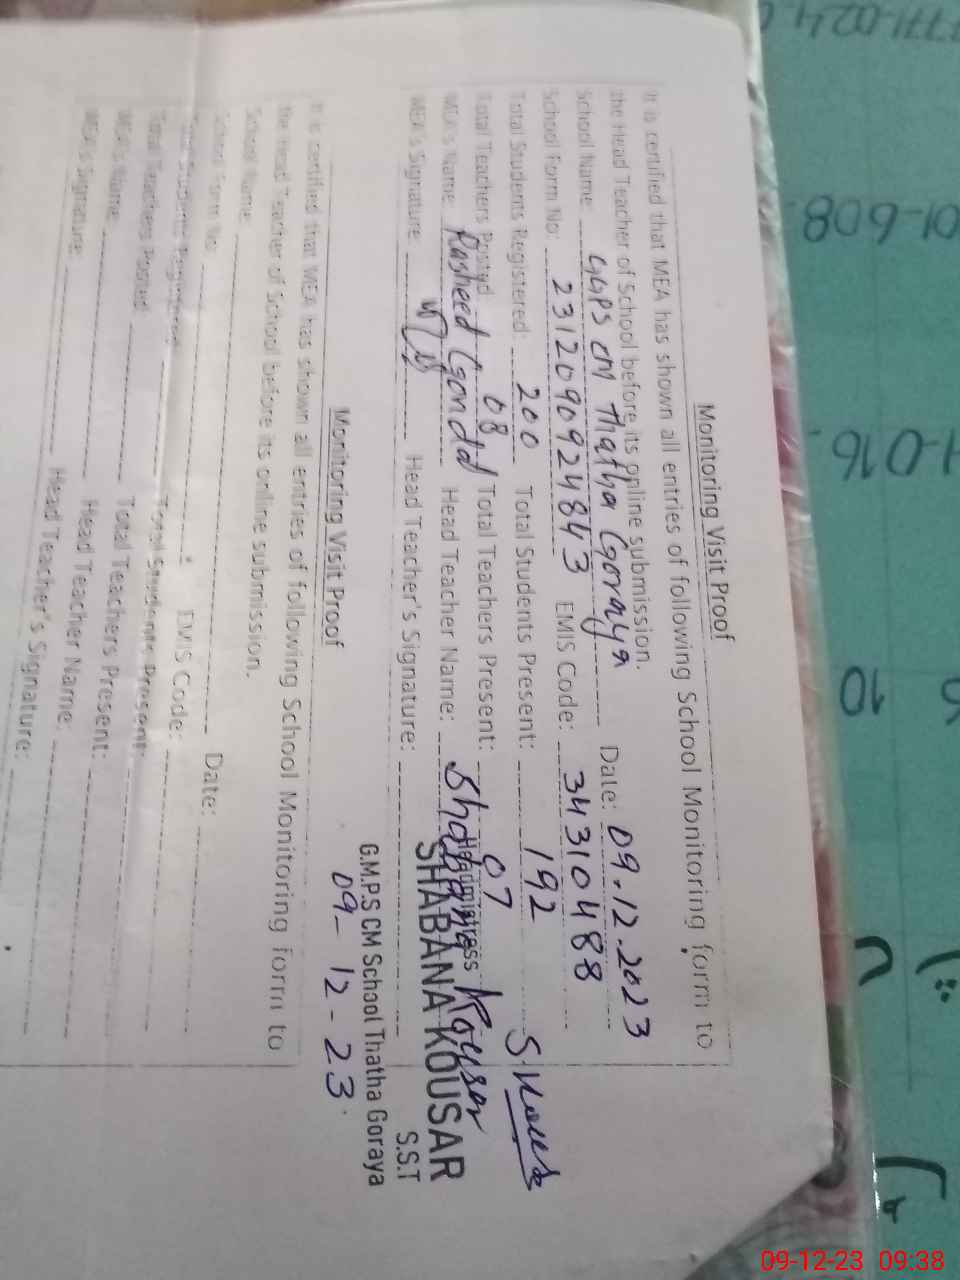 Monitoring Visit Proof
It is certified that MEA has shown all entries of following School Monitoring form to
the Head Teacher of School before its online submission.
School Name: GGPS CM Thatha Goraya Date: 09.12.2023
School Form No: 2312090924843 EMIS Code: 34310488
Total Students Registered: 200 Total Students Present: 192
Total Teachers Posted 08 Total Teachers Present: 07
MEA's Name: Rasheed Gondal Head Teacher Name: Shabana Kousar
MEA's Signature: Head Teacher's Signature:
Headmistress
SHABANA KOUSAR
S.S.T
G.M.P.S CM School Thatha Goraya
09-12-23.
Monitoring Visit Proof
It is certified that MEA has shown all entries of following School Monitoring form to
the Head Teacher of School before its online submission.
School Name: Date:
School Form No: EMIS Code:
Total Students Registered: Total Students Present:
Total Teachers Posted: Total Teachers Present:
MEA's Name: Head Teacher Name:
MEA's Signature: Head Teacher's Signature:
01-608
-016
10
09-12-23 09:38